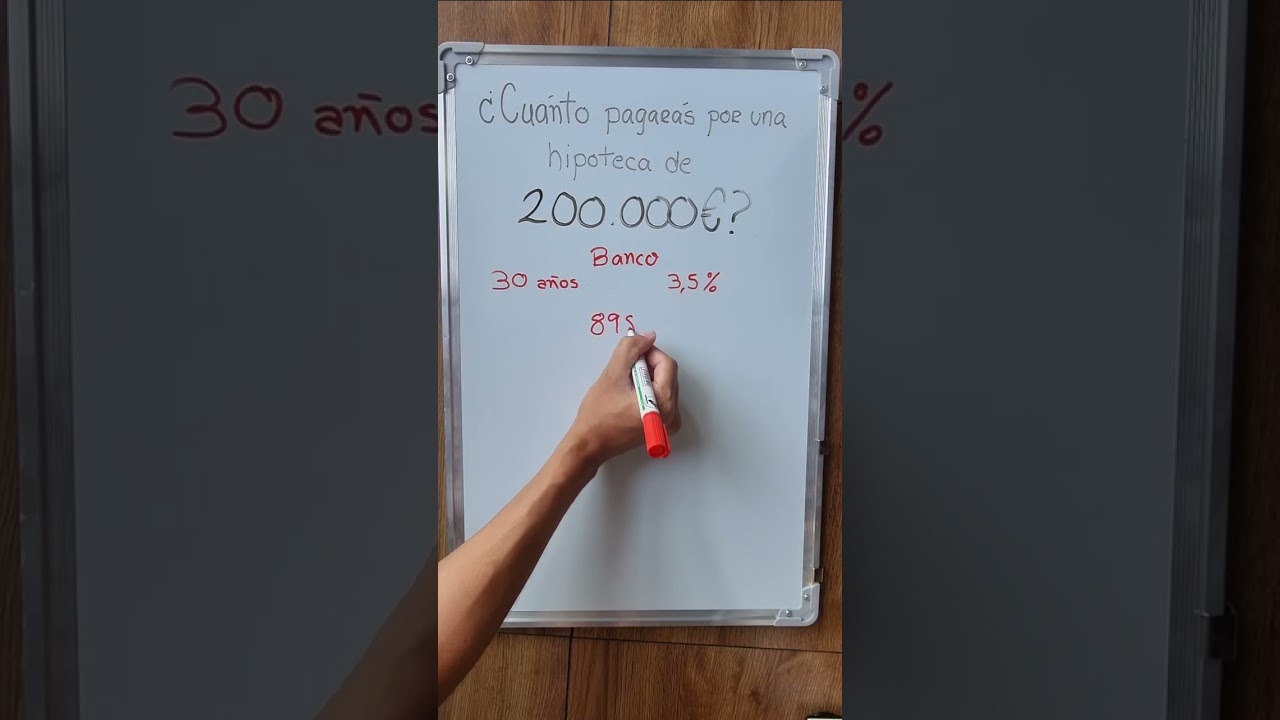 ¿Cuánto pagarás por una
hipoteca de
200.000€?
Banco
30 años 3,5%
898
30 años
%